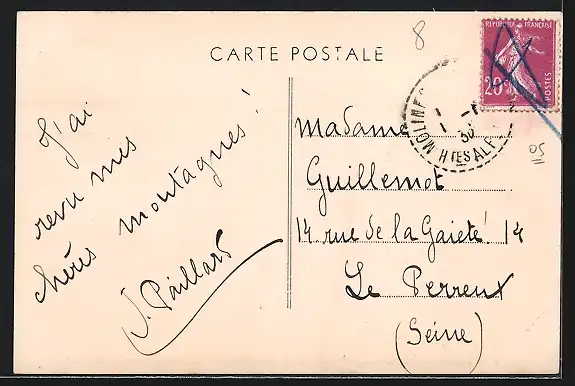 CARTE POSTALE
8
REPUBLIQUE FRANÇAISE
20
POSTES
MOLINES
Htes ALPES
J'ai
revu mes
chères montagnes!
J. Paillard
Madame
Guillemot
14 rue de la Gaieté 14
Le Perreux
(Seine)
05
11